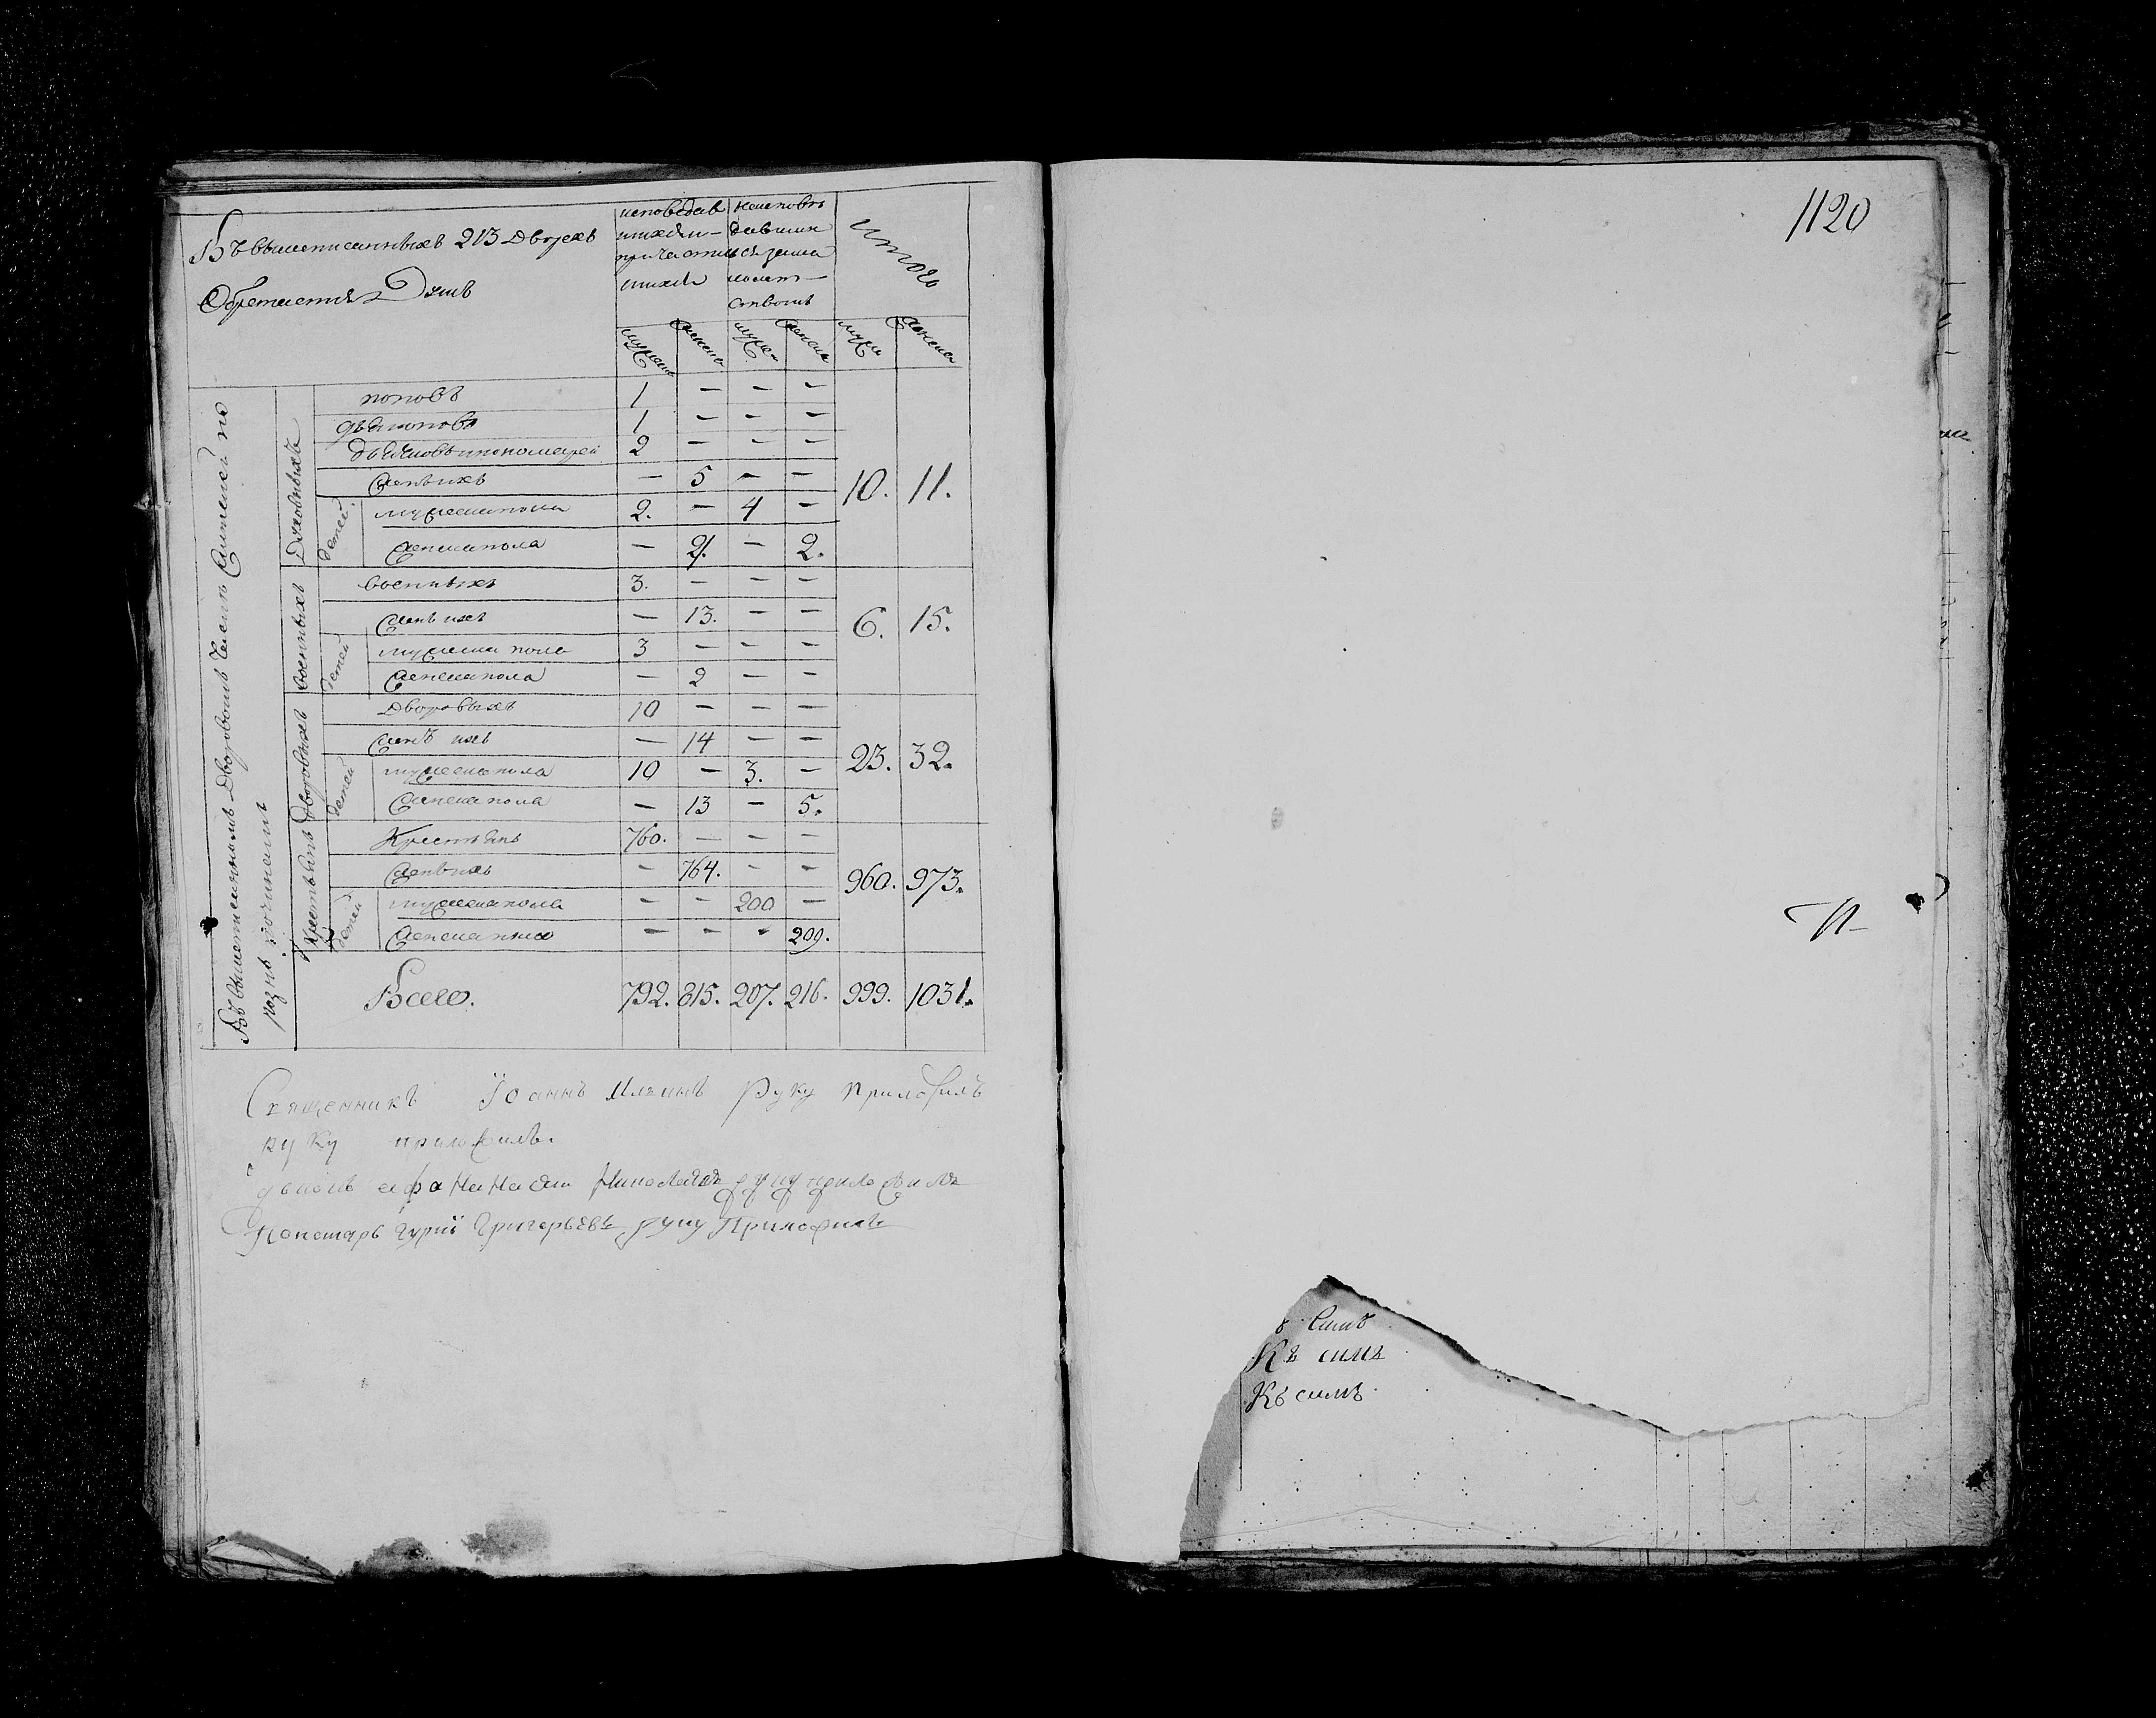 Въ вышеписанныхъ 213 дворехъ
Обретается Душъ
исповедав
шихся и
причасти
шихся
неисповѣ
давших
ся за ма
лолет
ствомъ
итого
мужеска
женска
мужес
женска
мужес
женска
Въ вышеписанномъ Дворовомъ Числѣ
разнь чинамъ
Духовныхъ
поповъ 1 — — —
дьяконовъ 1 — — —
дьячковъ и пономарей 2 — — —
жен ихъ — 5 — —
детей
мужеска пола 2. — 4 —
женска пола — 4. — 2.
10. 11.
военныхъ
военныхъ 3. — — —
жен ихъ — 13. — —
детей
мужеска пола 3 — — —
женска пола — 2 — —
6. 15.
Дворовыхъ
дворовыхъ 10 — — —
женъ ихъ — 14 — —
детей
мужеска пола 10 — 3. —
женска пола — 13 — 5.
23. 32.
Крестьянъ
Крестьянъ 760. — — —
жен ихъ — 764. — —
детей
мужеска пола — — 200 —
женска пола — — — 209.
960. 973.
Всего. 792. 815. 207. 216. 999. 1031.
Священникъ Їоаннъ Ильинъ руку приложилъ
руку приложилъ.
дьяконъ афанасии Николаевъ руку приложилъ
Пономарь гурїй Григорьевъ руку Приложилъ
1120
Къ симъ
Къ симъ